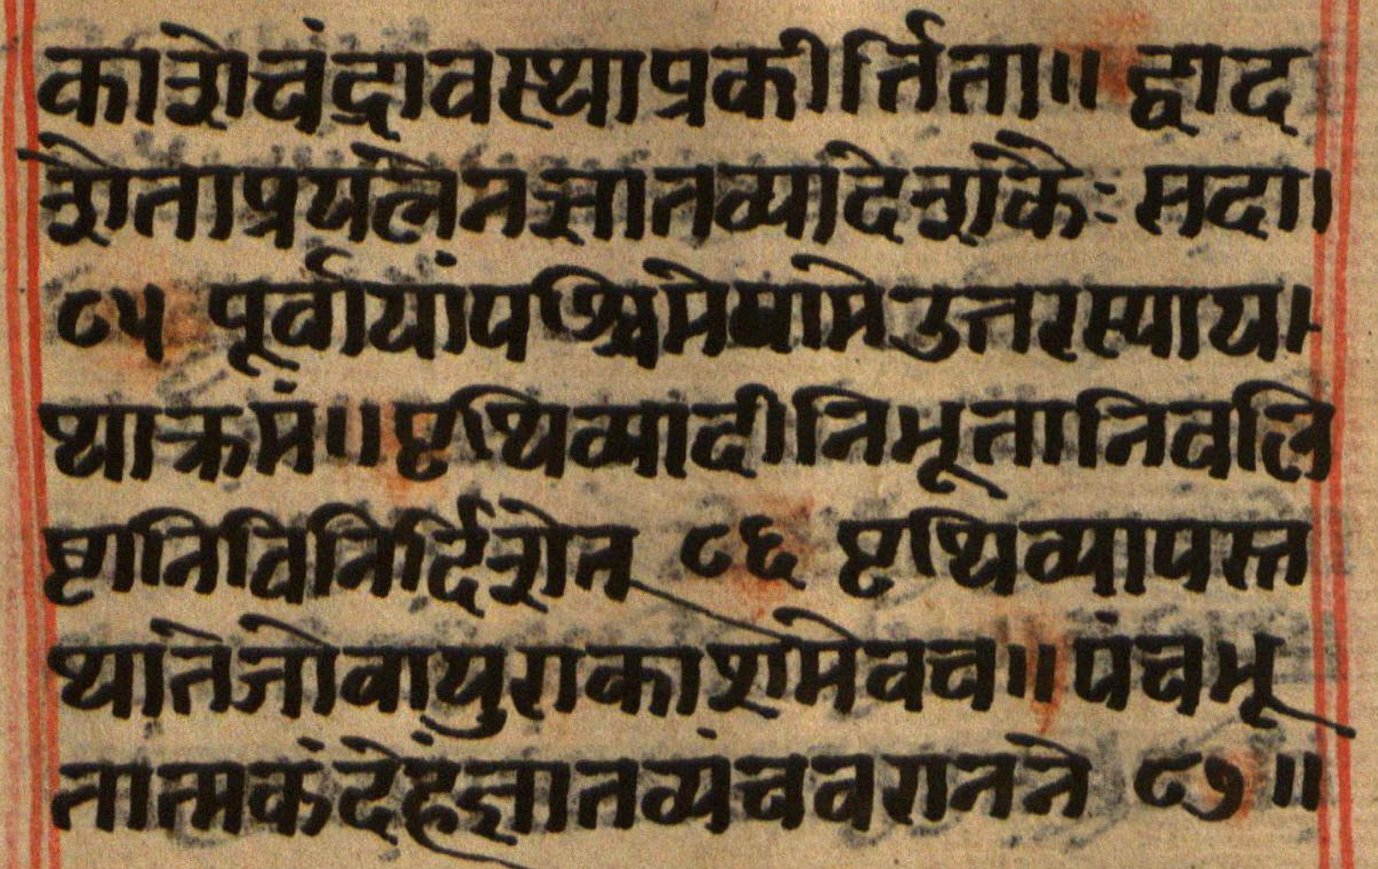 काशेचंद्रावस्थाप्रकीर्त्तिता॥ द्वाद
शेताप्रयत्नेनज्ञातव्यादेशकैः सदा।
८५ पूर्वायांपश्चिमेयामेउत्तरस्याय
थाक्रमं॥ पृथिव्यादीनिभूतानिबलि
ष्टानिविनिर्दिशेत् ८६ पृथिव्यापस्त
थातेजोवायुराकाशमेवच॥ पंचभू
तात्मकंदेहंज्ञातव्यंचवरानने ८७॥